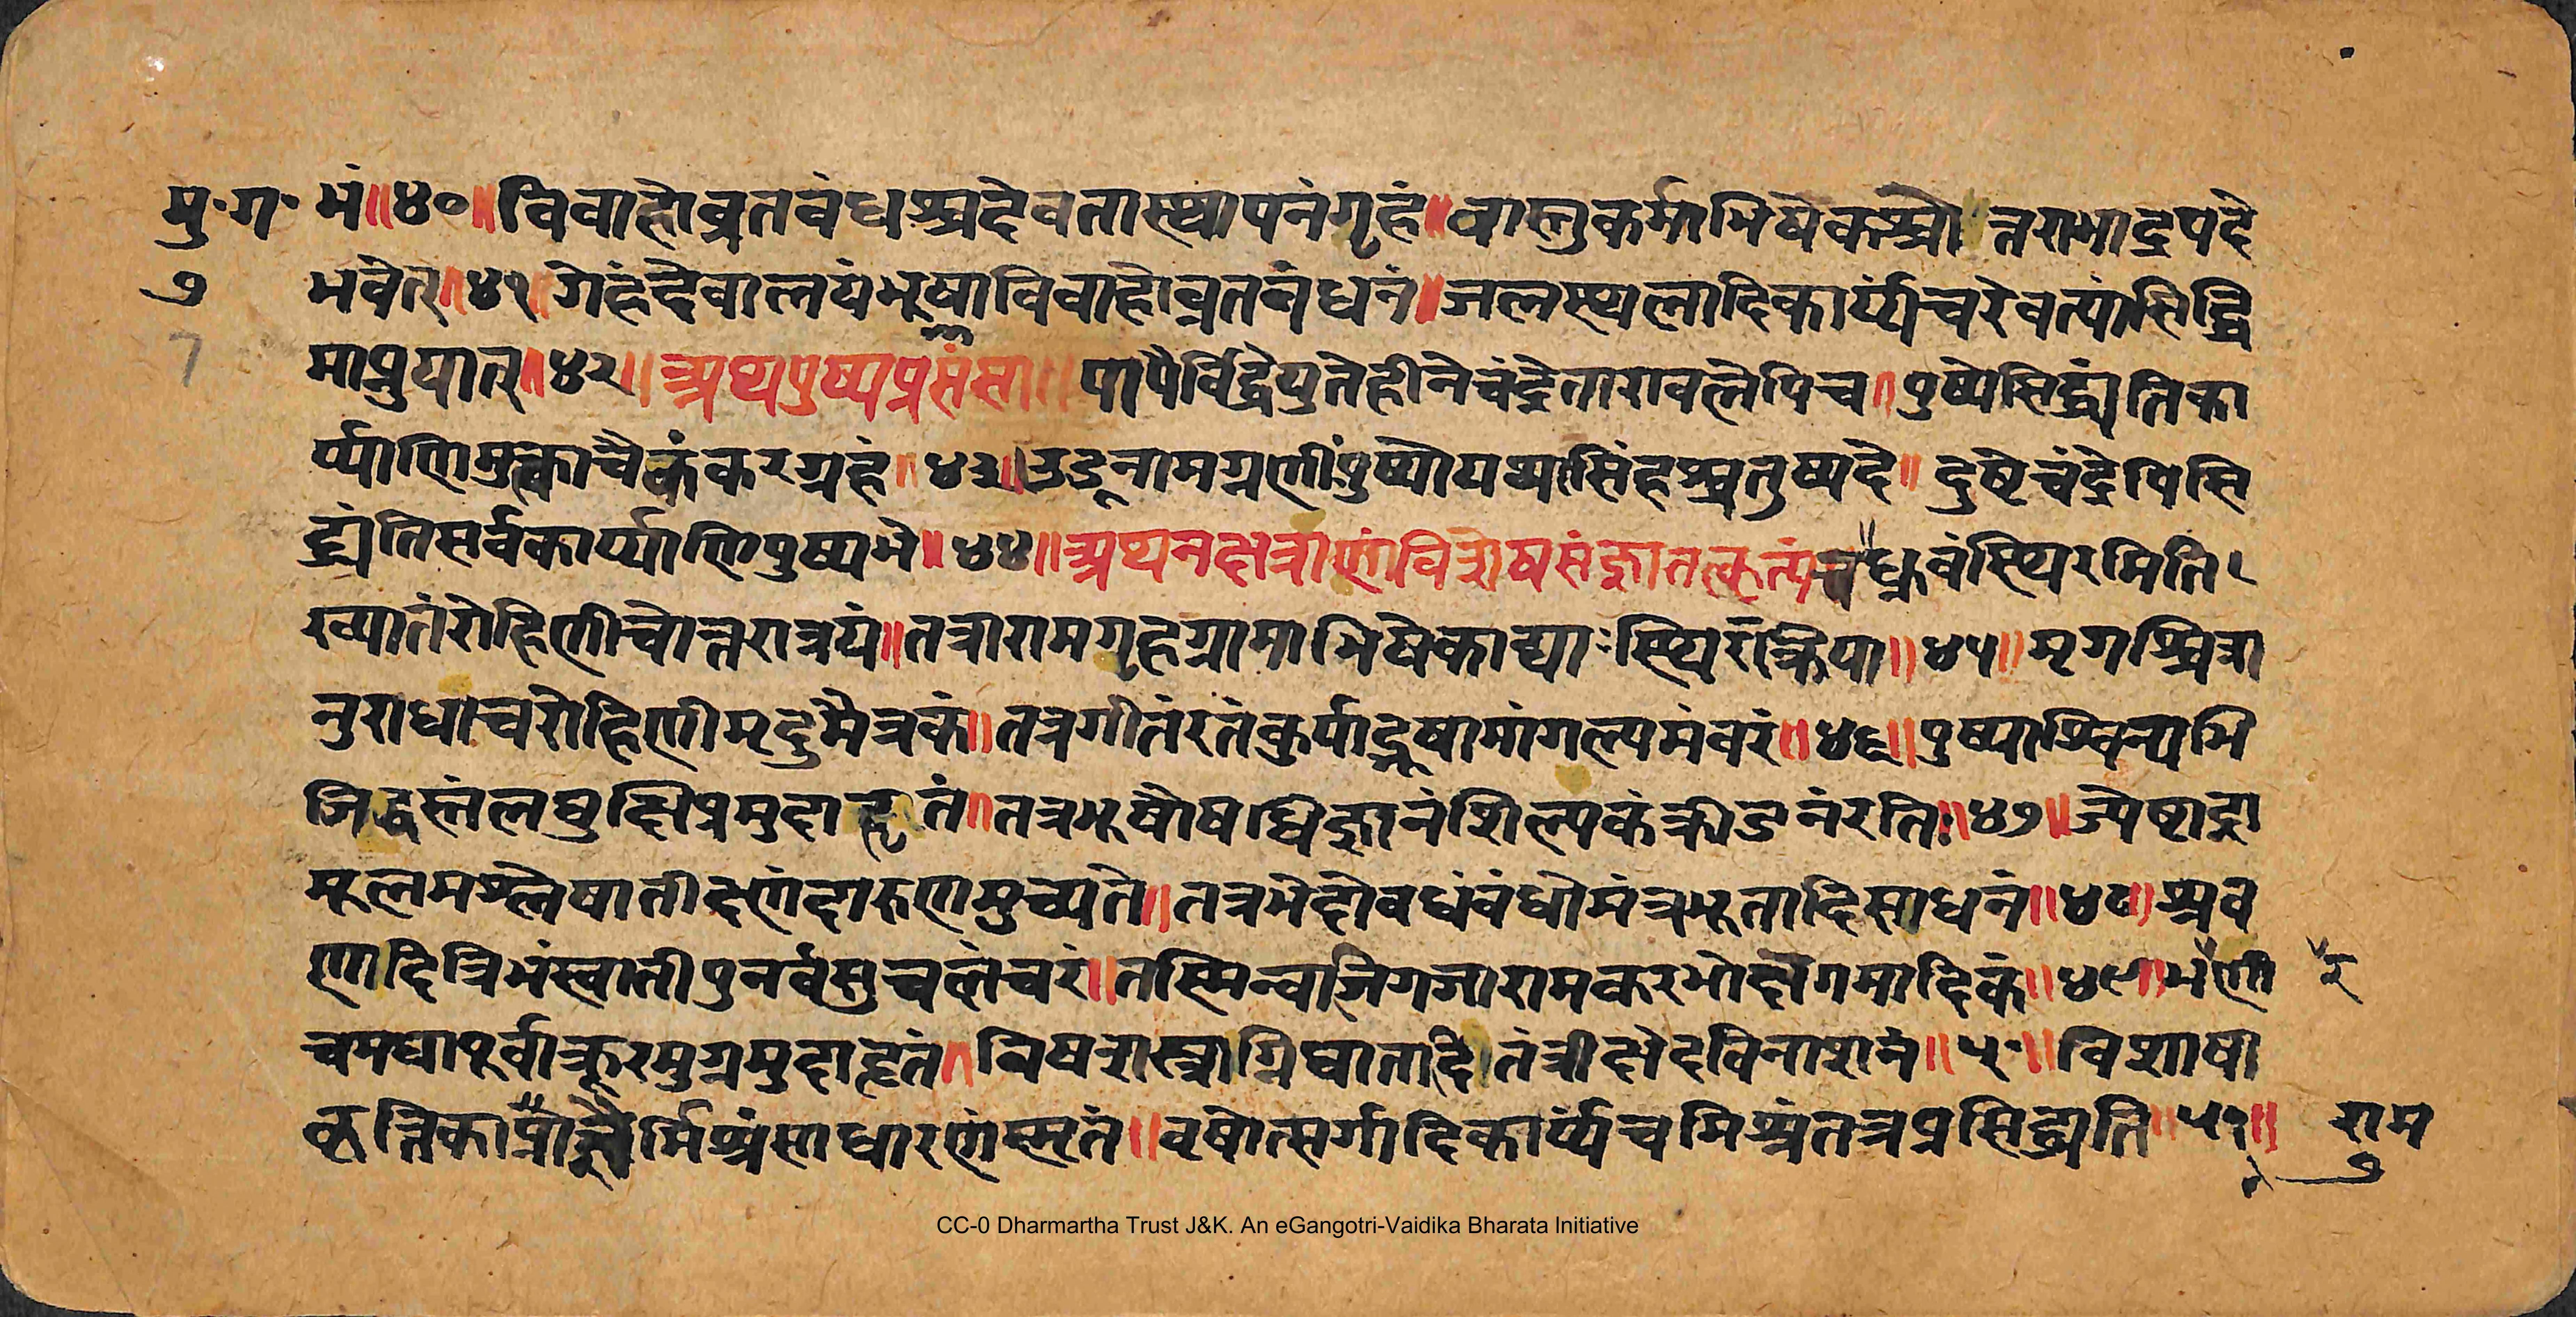 मु॰ग॰ भं॥४०॥विवाहोव्रतबंधश्चदेवतास्थापनंगृहं॥वास्तुकर्माभिषेकश्चोत्तराभाद्रपदे
७ भवेत्॥४१॥गेहंदेवालयंभूषाविवाहोव्रतबंधनं॥जलस्थलादिकार्य्यंचरेवत्यांसिद्धि
7 माप्नुयात्॥४२॥अथपुष्यप्रसंसा॥पापैर्विद्धेयुतेहीनेचंद्रेताराबलेपिच॥पुष्येसिद्ध्यंतिका
र्य्याणिमुत्काचैकंकरग्रहं॥४३॥उडूनामग्रणीःपुष्योयथासिंहश्चतुष्पदे॥दुष्टेचंद्रेपिसि
द्ध्यंतिसर्वकार्य्याणिपुष्यभे॥४४॥अथनक्षत्राणांविशेषसंज्ञातत्कृत्यंच॥ध्रुवंस्थिरमिति
ख्यातंरोहिणीचोत्तरात्रयं॥तत्रारामगृहग्रामाभिषेकाद्याःस्थिरक्रिया॥४५॥मृगश्चित्रा
नुराधाचरोहिणीमृदुमैत्रकं॥तत्रगीतंरतंकुर्याद्भूषामांगल्यमंबरं॥४६॥पुष्याश्विन्यभि
जिद्धस्तंलघुक्षिप्रमुदाहृतं॥तत्रभूषौषधिज्ञानंशिल्पकंक्रीडनंरतिः॥४७॥ज्येष्टार्द्रा
मूलमश्लेषातीक्ष्णंदारुणमुच्यते॥तत्रभेदोवधंबंधोमंत्रभूतादिसाधनं॥४८॥श्रव
णादित्रिभंस्वातीपुनर्वसुचलंचरं॥तस्मिन्वाजिगजारामकरभोद्योगमादिकं॥४९॥भणी र
चमघापूर्वाक्रूरमुग्रमुदाहृतं॥विषशस्त्राग्निघातादितंत्रीछेदविनाशनं॥५०॥विशाषा
कृत्तिकाप्रोक्तैर्मिश्रंसाधारणंस्मृतं॥वृषोत्सर्गादिकार्य्यंचमिश्रंतत्रप्रसिद्ध्यति॥५१॥ राम
७
CC-0 Dharmartha Trust J&K. An eGangotri-Vaidika Bharata Initiative